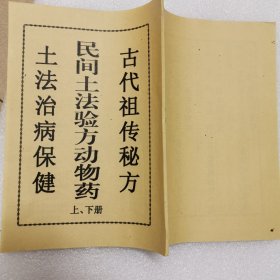 古代祖传秘方
民间土法验方动物药
上、下册
土法治病保健